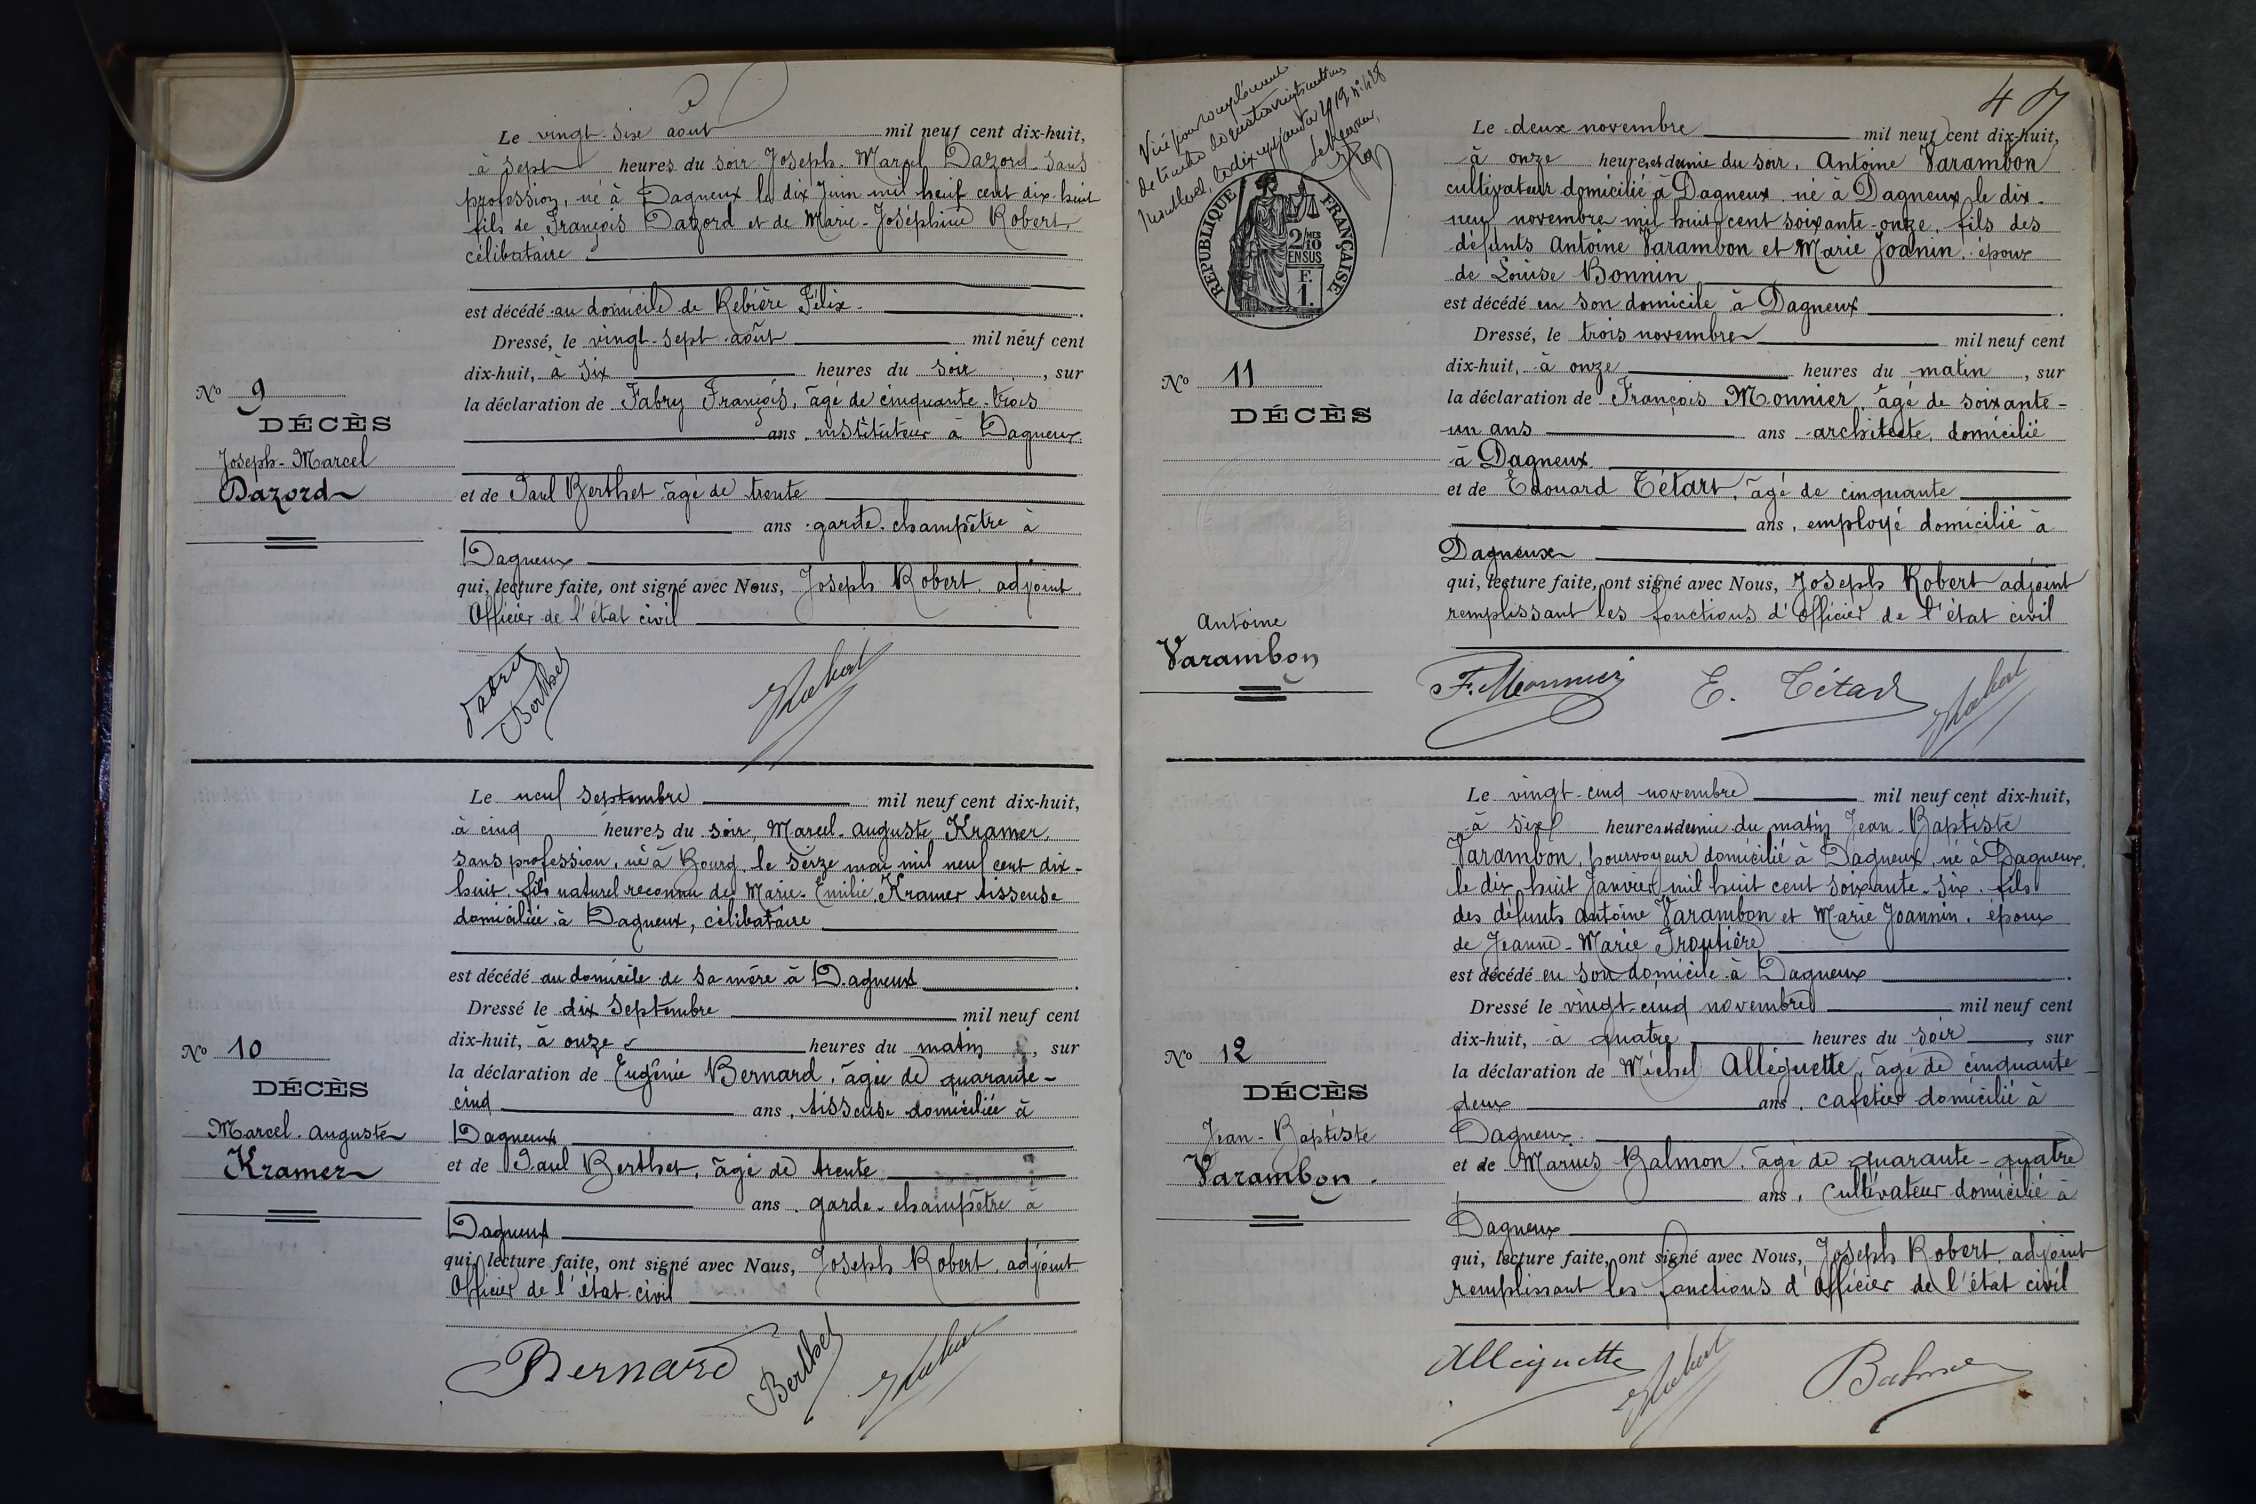 Le vingt-six août mil neuf cent dix-huit,
à sept heures du soir Joseph-Marcel Dazord sans
profession, né à Dagneux le dix Juin mil neuf cent dix-huit
fils de François Dazord et de Marie-Joséphine Robert,
célibataire
est décédé au domicile de Rebière Félix.
Dressé, le vingt-sept août mil neuf cent
dix-huit, à six heures du soir, sur
la déclaration de Fabry François, âgé de cinquante-trois
ans, instituteur à Dagneux
et de Paul Berthet âgé de trente
ans garde-champêtre à
Dagneux
qui, lecture faite, ont signé avec Nous, Joseph Robert, adjoint
Officier de l'état civil
No 9
DÉCÈS
Joseph-Marcel
Dazord
Fabry
Berthet
JRobert
Le neuf septembre mil neuf cent dix-huit,
à cinq heures du soir, Marcel-Auguste Kramer,
sans profession, né à Bourg le seize mai mil neuf cent dix-
huit, fils naturel reconnu de Marie-Emilie Kramer tisseuse
domiciliée à Dagneux, célibataire
est décédé au domicile de sa mère à Dagneux
Dressé le dix septembre mil neuf cent
dix-huit, à onze heures du matin, sur
la déclaration de Eugénie Bernard, âgée de quarante-
cinq ans, tisseuse domiciliée à
Dagneux
et de Paul Berthet, âgé de trente
ans garde-champêtre à
Dagneux
qui, lecture faite, ont signé avec Nous, Joseph Robert, adjoint
Officier de l'état civil
No 10
DÉCÈS
Marcel-Auguste
Kramer
Bernard
Berthet
JRobert
Visé pour complément
de timbre
1919
RÉPUBLIQUE FRANÇAISE
2/MES
10
EN SUS
F.
1.
4
Le deux novembre mil neuf cent dix-huit,
à onze heures et demie du soir, Antoine Varambon
cultivateur domicilié à Dagneux né à Dagneux le dix-
neuf novembre mil huit cent soixante-onze, fils des
défunts Antoine Varambon et Marie Joanin, époux
de Louise Bonnin
est décédé en son domicile à Dagneux
Dressé, le trois novembre mil neuf cent
dix-huit, à onze heures du matin, sur
la déclaration de François Monnier, âgé de soixante-
un ans ans architecte, domicilié
à Dagneux
et de Edouard Tétart, âgé de cinquante
ans, employé domicilié à
Dagneux
qui, lecture faite, ont signé avec Nous, Joseph Robert adjoint
remplissant les fonctions d'Officier de l'état civil
No 11
DÉCÈS
Antoine
Varambon
F. Monnier
E. Tétart
JRobert
Le vingt-cinq novembre mil neuf cent dix-huit,
à six heures et demie du matin Jean-Baptiste
Varambon, pourvoyeur domicilié à Dagneux, né à Dagneux,
le dix-huit Janvier mil huit cent soixante-six, fils
des défunts Antoine Varambon et Marie Joannin, époux
de Jeanne-Marie
est décédé en son domicile à Dagneux
Dressé le vingt-cinq novembre mil neuf cent
dix-huit, à quatre heures du soir, sur
la déclaration de Michel Alléguette, âgé de cinquante
deux ans, cafetier domicilié à
Dagneux
et de Marius Balmon, âgé de quarante-quatre
ans, Cultivateur domicilié à
Dagneux
qui, lecture faite, ont signé avec Nous, Joseph Robert, adjoint
remplissant les fonctions d'Officier de l'état civil
No 12
DÉCÈS
Jean-Baptiste
Varambon
Alleiguette
JRobert